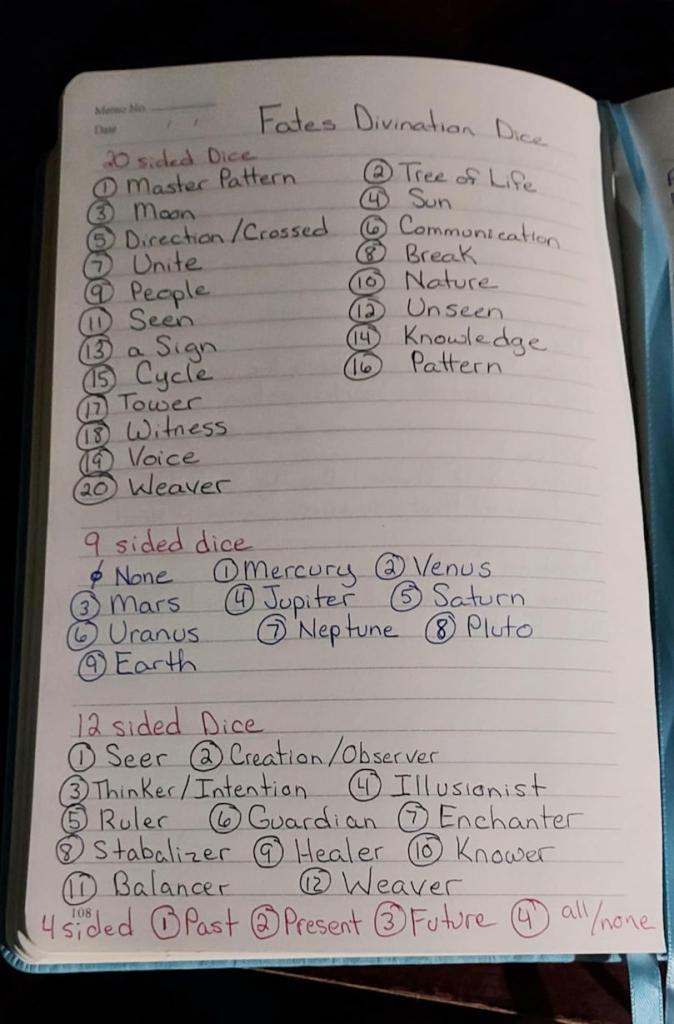 Memo No.
Date / /
Fates Divination Dice
20 sided Dice
① Master Pattern ② Tree of Life
③ Moon ④ Sun
⑤ Direction/Crossed ⑥ Communication
⑦ Unite ⑧ Break
⑨ People ⑩ Nature
⑪ Seen ⑫ Unseen
⑬ a Sign ⑭ Knowledge
⑮ Cycle ⑯ Pattern
⑰ Tower
⑱ Witness
⑲ Voice
⑳ Weaver
9 sided dice
φ None ① Mercury ② Venus
③ Mars ④ Jupiter ⑤ Saturn
⑥ Uranus ⑦ Neptune ⑧ Pluto
⑨ Earth
12 sided Dice
① Seer ② Creation/Observer
③ Thinker/Intention ④ Illusionist
⑤ Ruler ⑥ Guardian ⑦ Enchanter
⑧ Stabalizer ⑨ Healer ⑩ Knower
⑪ Balancer ⑫ Weaver
108
4 sided ① Past ② Present ③ Future ④ all/none